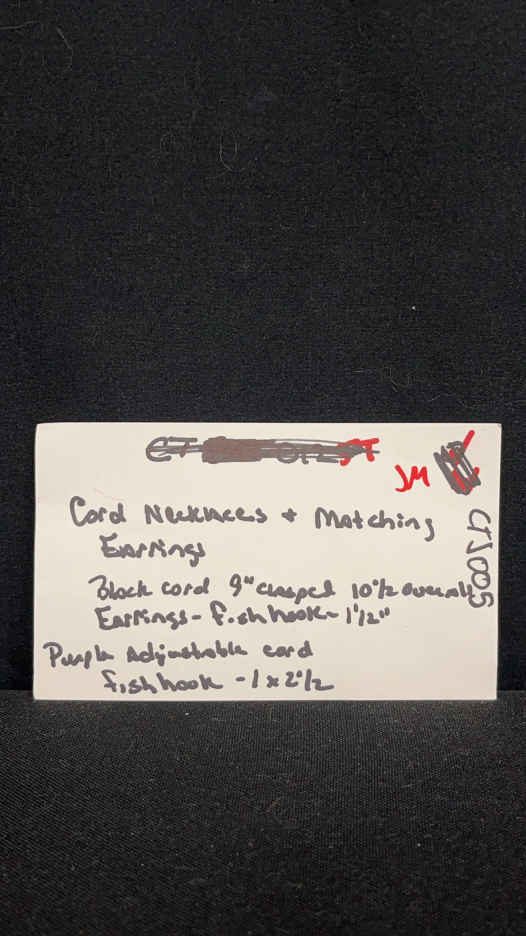 JM
Cord Necklaces + Matching
Earrings
Black cord 9" clasped 10"½ overall
Earrings - fishhook - 1½"
Purple Adjustable cord
fishhook - 1 x 2"½